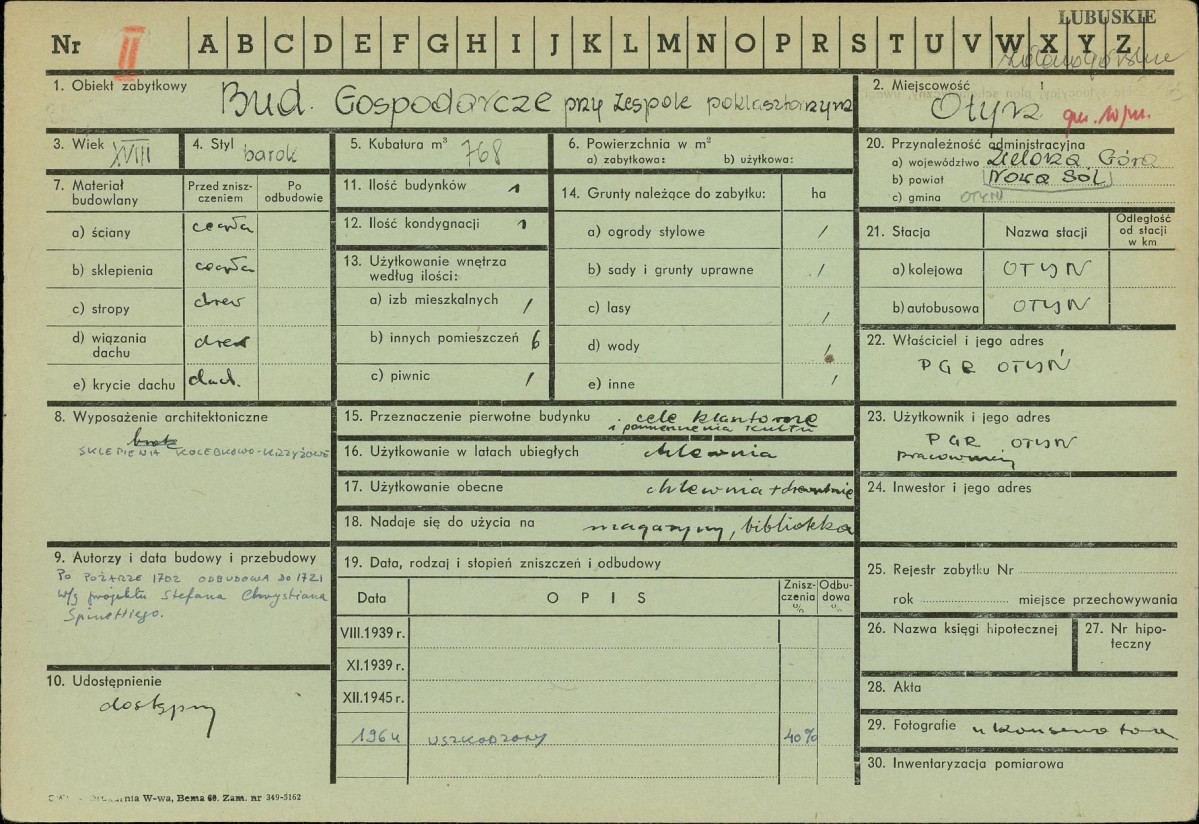 LUBUSKIE
Nr II A B C D E F G H I J K L M N O P R S T U V W X Y Z
1. Obiekt zabytkowy Bud. Gospodarcze przy zespole poklasztornym
2. Miejscowość Otyń
3. Wiek XVIII
4. Styl barok
5. Kubatura m³ 768
6. Powierzchnia w m²
a) zabytkowa: b) użytkowa:
20. Przynależność administracyjna
a) województwo Zielona Góra
b) powiat Nowa Sól
c) gmina OTYŃ
7. Materiał budowlany
Przed znisz-czeniem
Po odbudowie
a) ściany cegła
b) sklepienia cegła
c) stropy drew
d) wiązania dachu drew
e) krycie dachu dach.
11. Ilość budynków 1
12. Ilość kondygnacji 1
13. Użytkowanie wnętrza według ilości:
a) izb mieszkalnych /
b) innych pomieszczeń 6
c) piwnic /
14. Grunty należące do zabytku: ha
a) ogrody stylowe /
b) sady i grunty uprawne /
c) lasy /
d) wody /
e) inne /
21. Stacja
Nazwa stacji
Odległość od stacji w km
a) kolejowa OTYŃ
b) autobusowa OTYŃ
22. Właściciel i jego adres
PGR OTYŃ
8. Wyposażenie architektoniczne
SKLEPIENIA KOLEBKOWO-KRZYŻOWE
15. Przeznaczenie pierwotne budynku cele klasztorne
i pomieszczenia kultu
16. Użytkowanie w latach ubiegłych chlewnia
17. Użytkowanie obecne chlewnia + drewutnie
18. Nadaje się do użycia na magazyny, biblioteka
23. Użytkownik i jego adres
PGR OTYŃ
pracownicy
24. Inwestor i jego adres
9. Autorzy i data budowy i przebudowy
Po POŻARZE 1702 ODBUDOWA DO 1721
w/g projektu Stefana Chrystiana
Spinettiego.
19. Data, rodzaj i stopień zniszczeń i odbudowy
Data
OPIS
Znisz-czenia %
Odbu-dowa %
VIII.1939 r.
XI.1939 r.
XII.1945 r.
1964 USZKODZONY 40%
25. Rejestr zabytku Nr
rok miejsce przechowywania
26. Nazwa księgi hipotecznej
27. Nr hipo-teczny
10. Udostępnienie
dostępny
28. Akta
29. Fotografie u konserwatora
30. Inwentaryzacja pomiarowa
W-wa, Bema 60. Zam. nr 349-5162